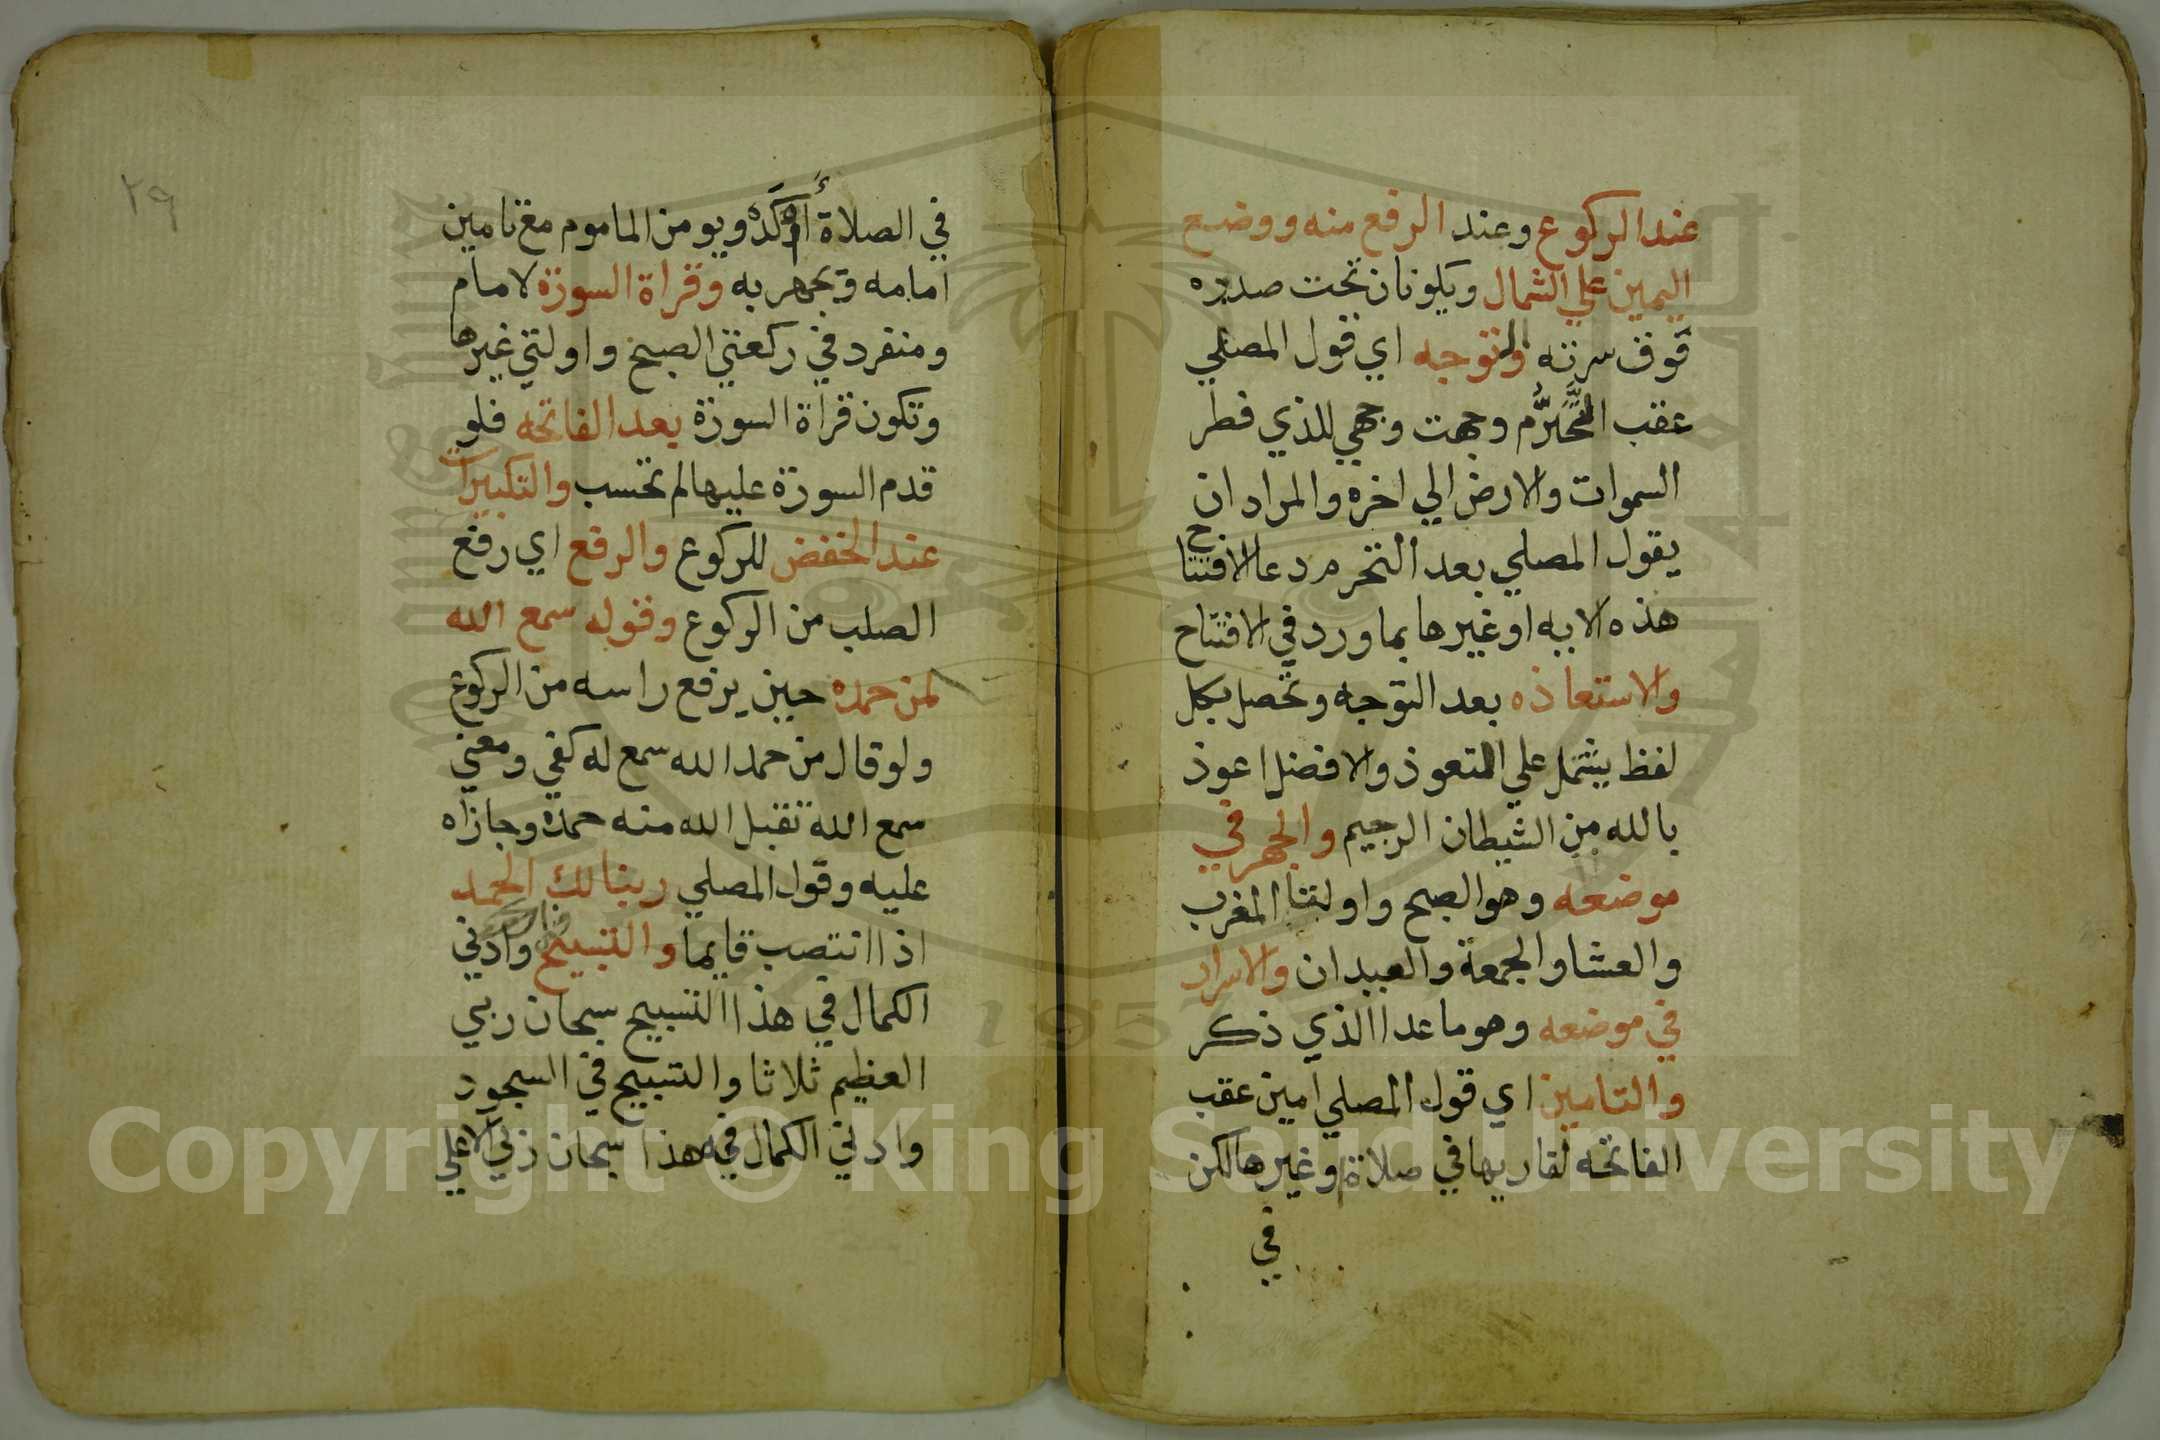 عند الركوع وعند الرفع منه ووضع
اليمين علي الشمال ويكونان تحت صدره
فوق سرته والتوجه اي قول المصلي
عقب التحرم وجهت وجهي للذي فطر
السموات والارض الي اخره والمراد ان
يقول المصلي بعد التحرم دعا الافتتاح
هذه الايه او غيرها بما ورد في الافتتاح
والاستعاذه بعد التوجه وتحصل بكل
لفظ يشتمل علي التعوذ والافضل اعوذ
بالله من الشيطان الرجيم والجهر في
موضعه وهو الصبح واولتا المغرب
والعشا والجمعة والعيدان والاسرار
في موضعه وهو ما عدا الذي ذكر
والتامين اي قول المصلي امين عقب
الفاتحه لقاريها في صلاة وغيرها لكن
في
٢٩
في الصلاة أكد ويومن الماموم مع تامين
امامه ويجهر به وقراة السورة لامام
ومنفرد في ركعتي الصبح واولتي غيرها
وتكون قراة السورة بعد الفاتحه فلو
قدم السورة عليها لم تحسب والتكبيرات
عند الخفض للركوع والرفع اي رفع
الصلب من الركوع وقوله سمع الله
لمن حمده حين يرفع راسه من الركوع
ولو قال من حمد الله سمع له كفي ومعني
سمع الله تقبل الله منه حمده وجازاه
عليه وقول المصلي ربنا لك الحمد
اذا انتصب قايما والتسبيح وادني
الكمال في هذا التسبيح سبحان ربي
العظيم ثلاثا والتسبيح في السجود
وادني الكمال في هذا سبحان ربي الاعلي
1957
Copyright © King Saud University